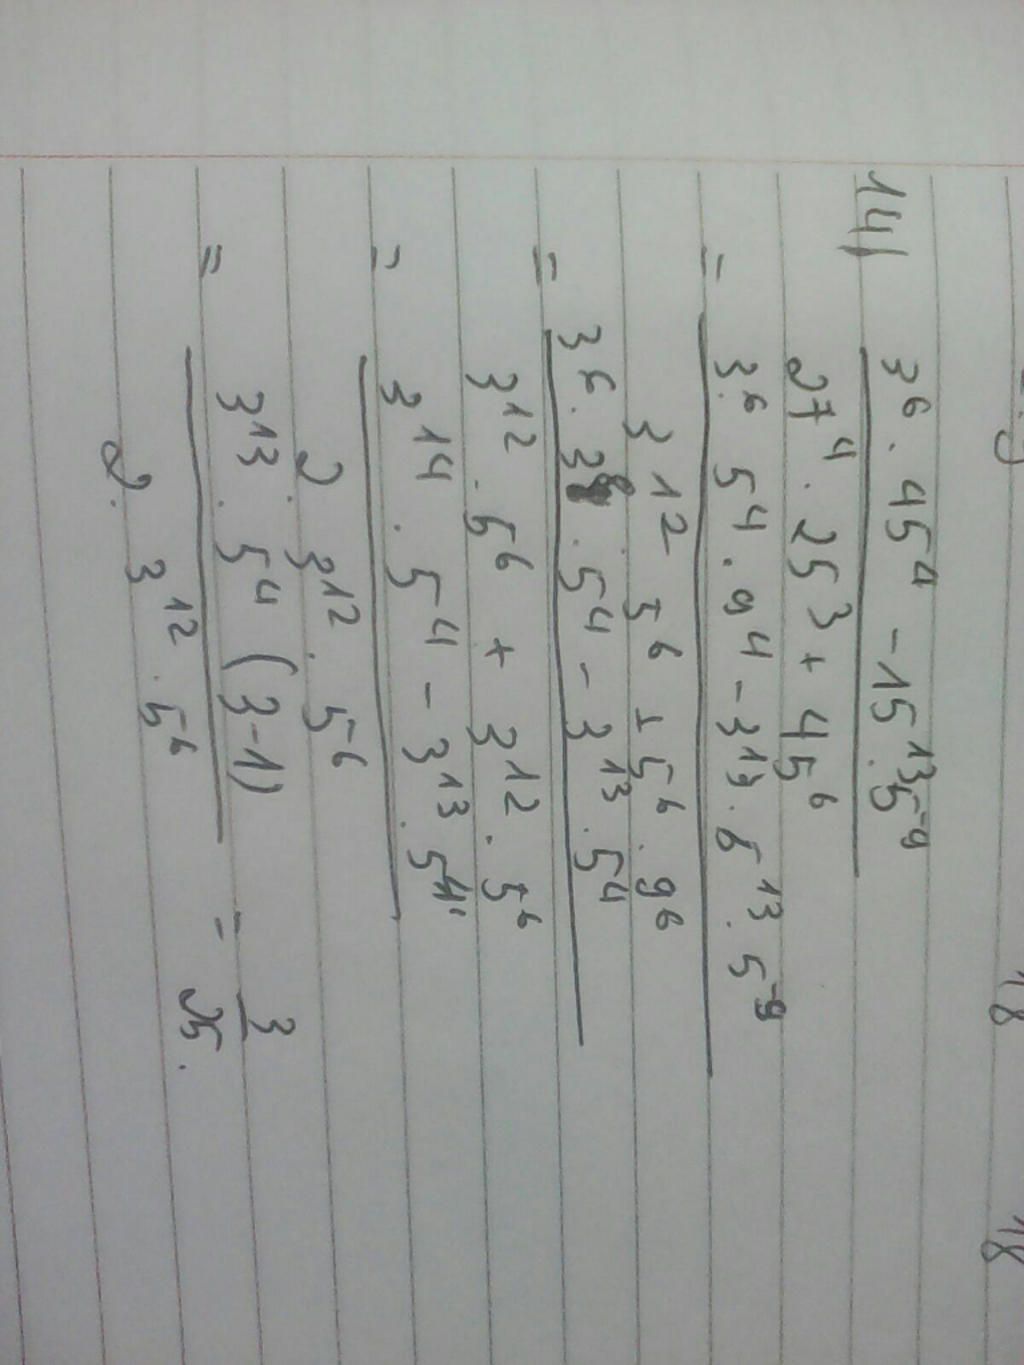 14) 3⁶ . 45⁴ - 15¹³ . 5⁻⁹
27⁴ . 25³ + 45⁶
= 3⁶ 5⁴ . 9⁴ - 3¹³ . 5¹³ . 5⁻⁹
3¹² . 5⁶ + 5⁶ . 9⁶
= 3⁶ . 3⁸ . 5⁴ - 3¹³ . 5⁴
3¹² . 5⁶ + 3¹² . 5⁶
= 3¹⁴ . 5⁴ - 3¹³ . 5⁴
2 . 3¹² . 5⁶
= 3¹³ . 5⁴ (3-1) = 3
2 . 3¹² . 5⁶ 25.
18
18